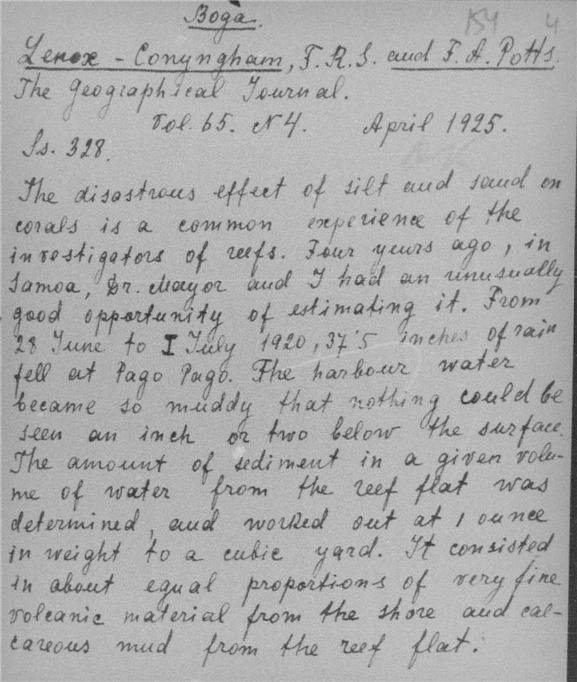 Boga.
154 4
Lenox - Conyngham, F.R.S. and F.A. Potts.
The Geographical Journal.
Vol. 65. N 4. April 1925.
Ss. 328.
The disastrous effect of silt and sand on
corals is a common experience of the
investigators of reefs. Four years ago, in
Samoa, Dr. Mayor and I had an unusually
good opportunity of estimating it. From
28 June to I July 1920, 37'5 inches of rain
fell at Pago Pago. The harbour water
became so muddy that nothing could be
seen an inch or two below the surface.
The amount of sediment in a given volu-
me of water from the reef flat was
determined, and worked out at 1 ounce
in weight to a cubic yard. It consisted
in about equal proportions of very fine
volcanic material from the shore and cal-
careous mud from the reef flat.